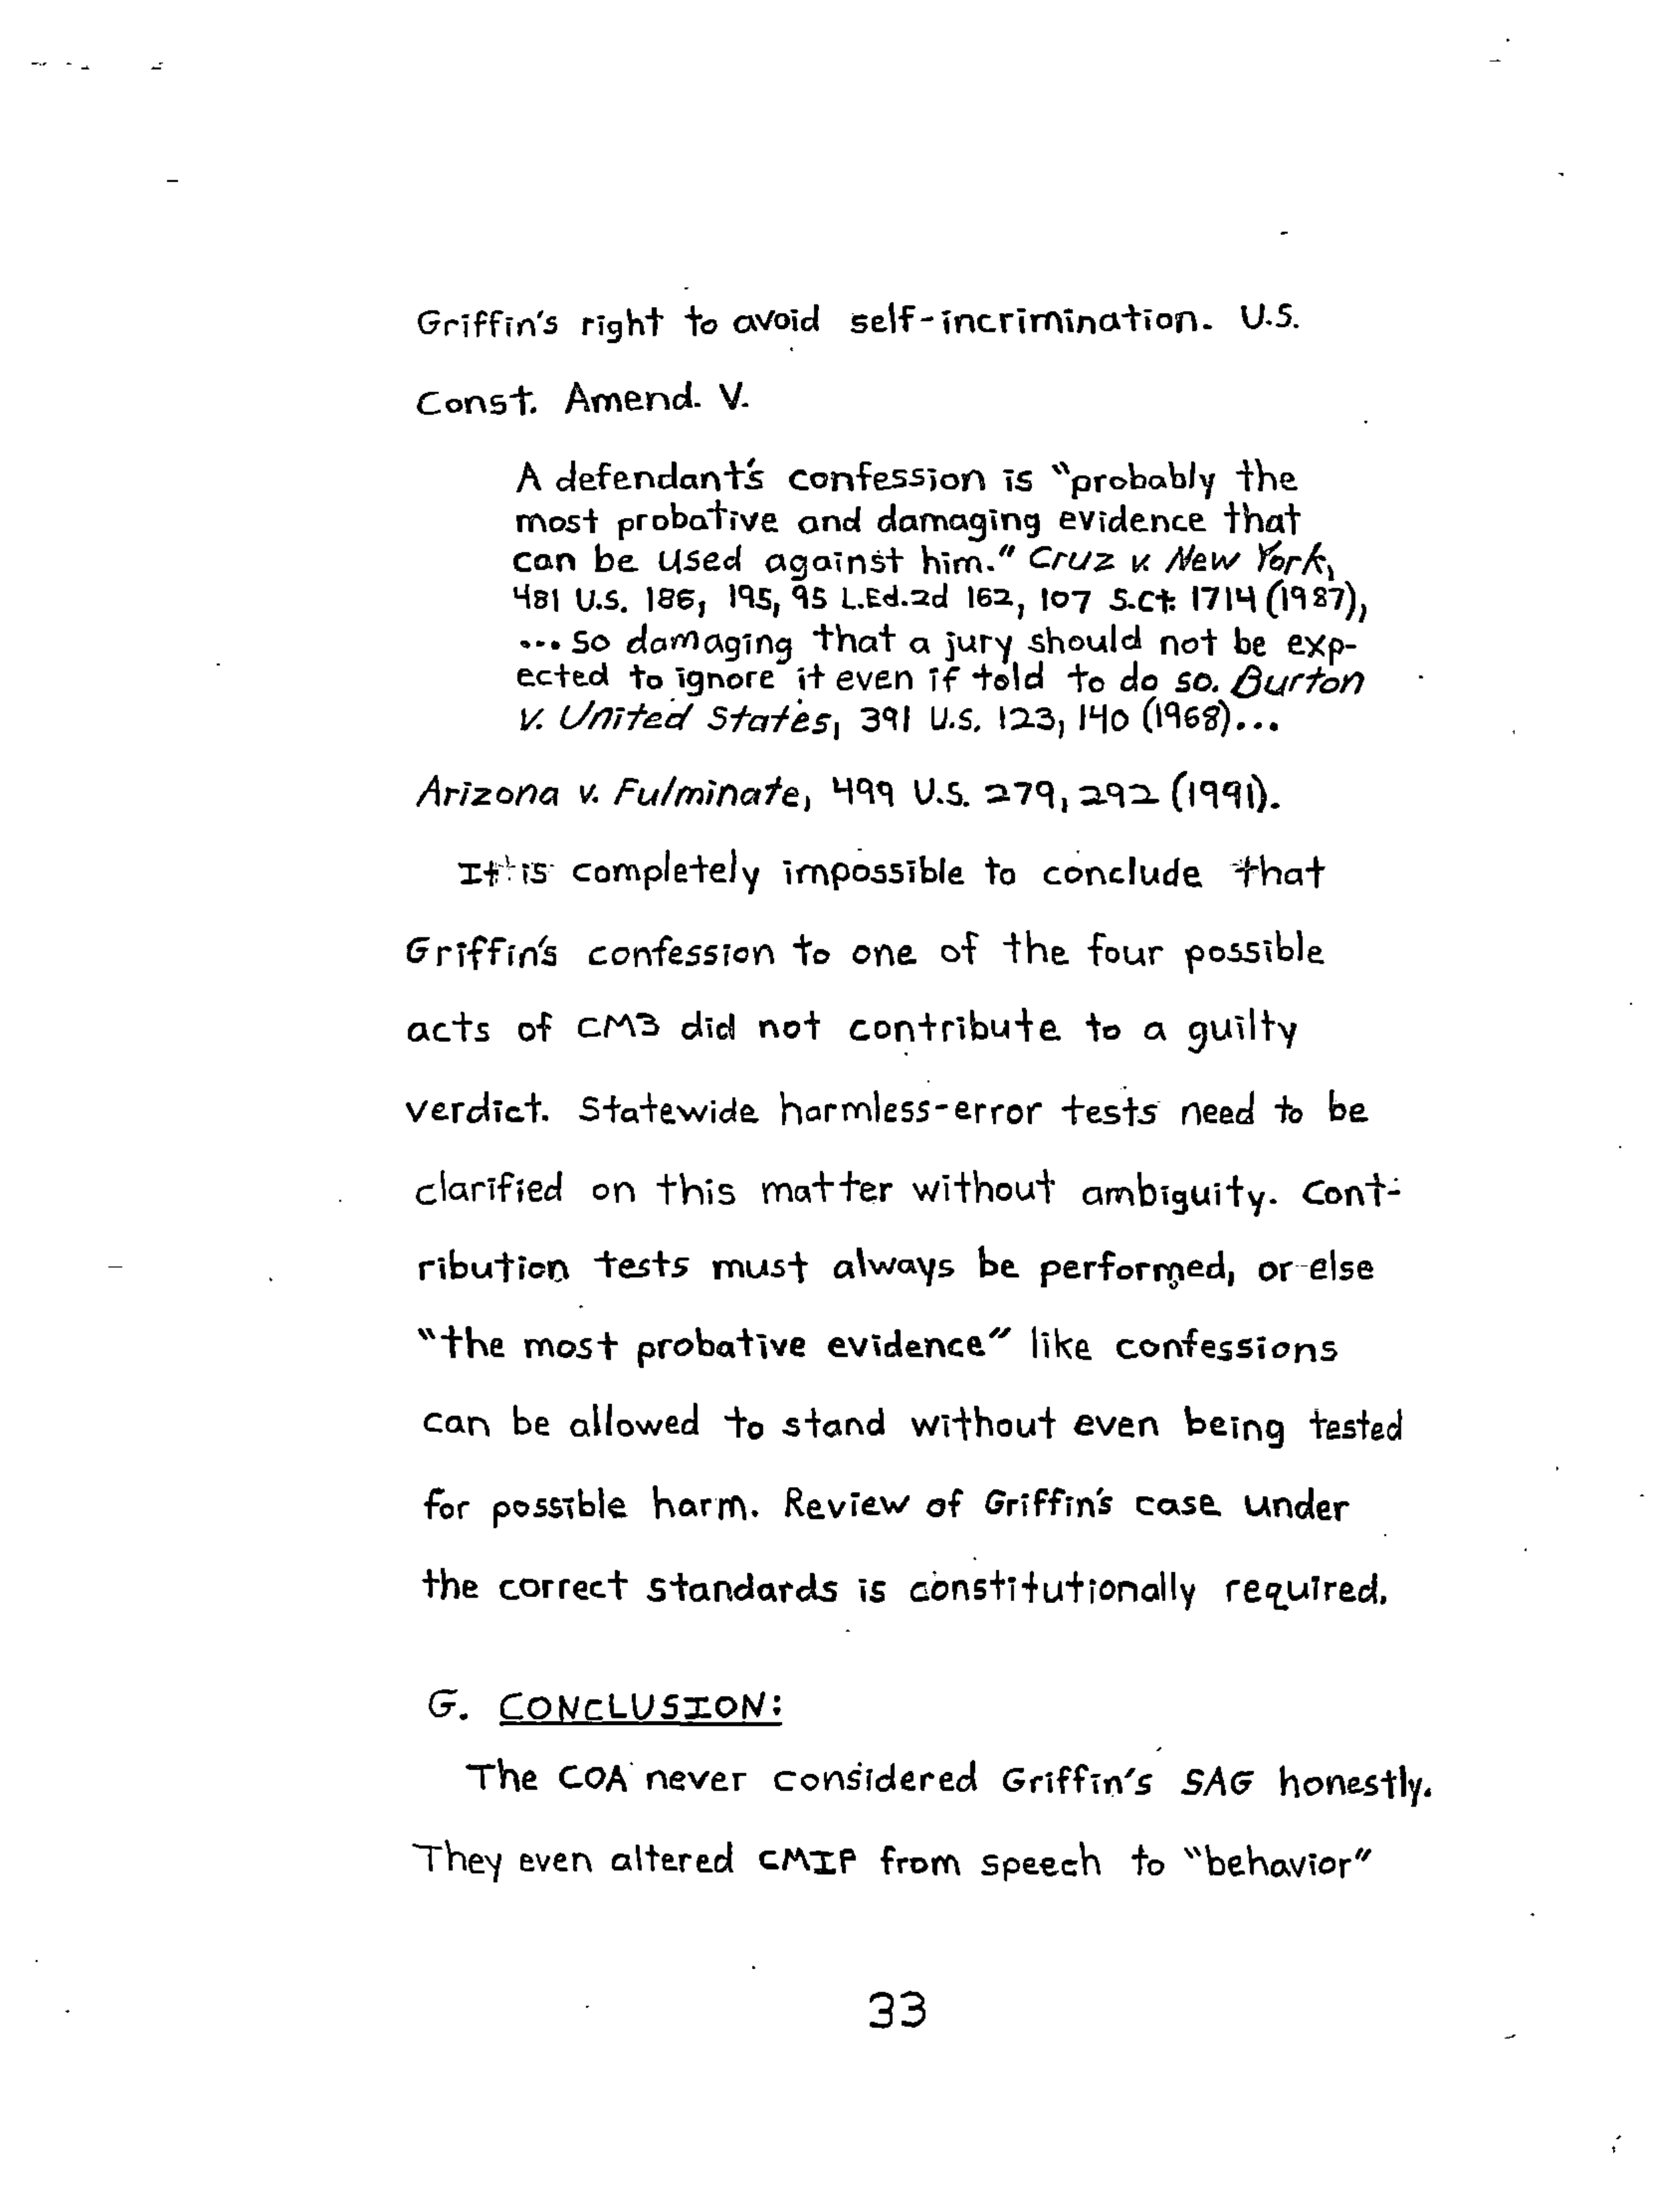 Griffin's right to avoid self-incrimination. U.S.
Const. Amend. V.
A defendant's confession is "probably the
most probative and damaging evidence that
can be used against him." Cruz v. New York,
481 U.S. 186, 195, 95 L.Ed.2d 162, 107 S.Ct. 1714 (1987),
... so damaging that a jury should not be exp-
ected to ignore it even if told to do so. Burton
v. United States, 391 U.S. 123, 140 (1968)...
Arizona v. Fulminate, 499 U.S. 279, 292 (1991).
It is completely impossible to conclude that
Griffin's confession to one of the four possible
acts of CM3 did not contribute to a guilty
verdict. Statewide harmless-error tests need to be
clarified on this matter without ambiguity. Cont-
ribution tests must always be performed, or else
"the most probative evidence" like confessions
can be allowed to stand without even being tested
for possible harm. Review of Griffin's case under
the correct standards is constitutionally required.
G. CONCLUSION:
The COA never considered Griffin's SAG honestly.
They even altered CMIP from speech to "behavior"
33